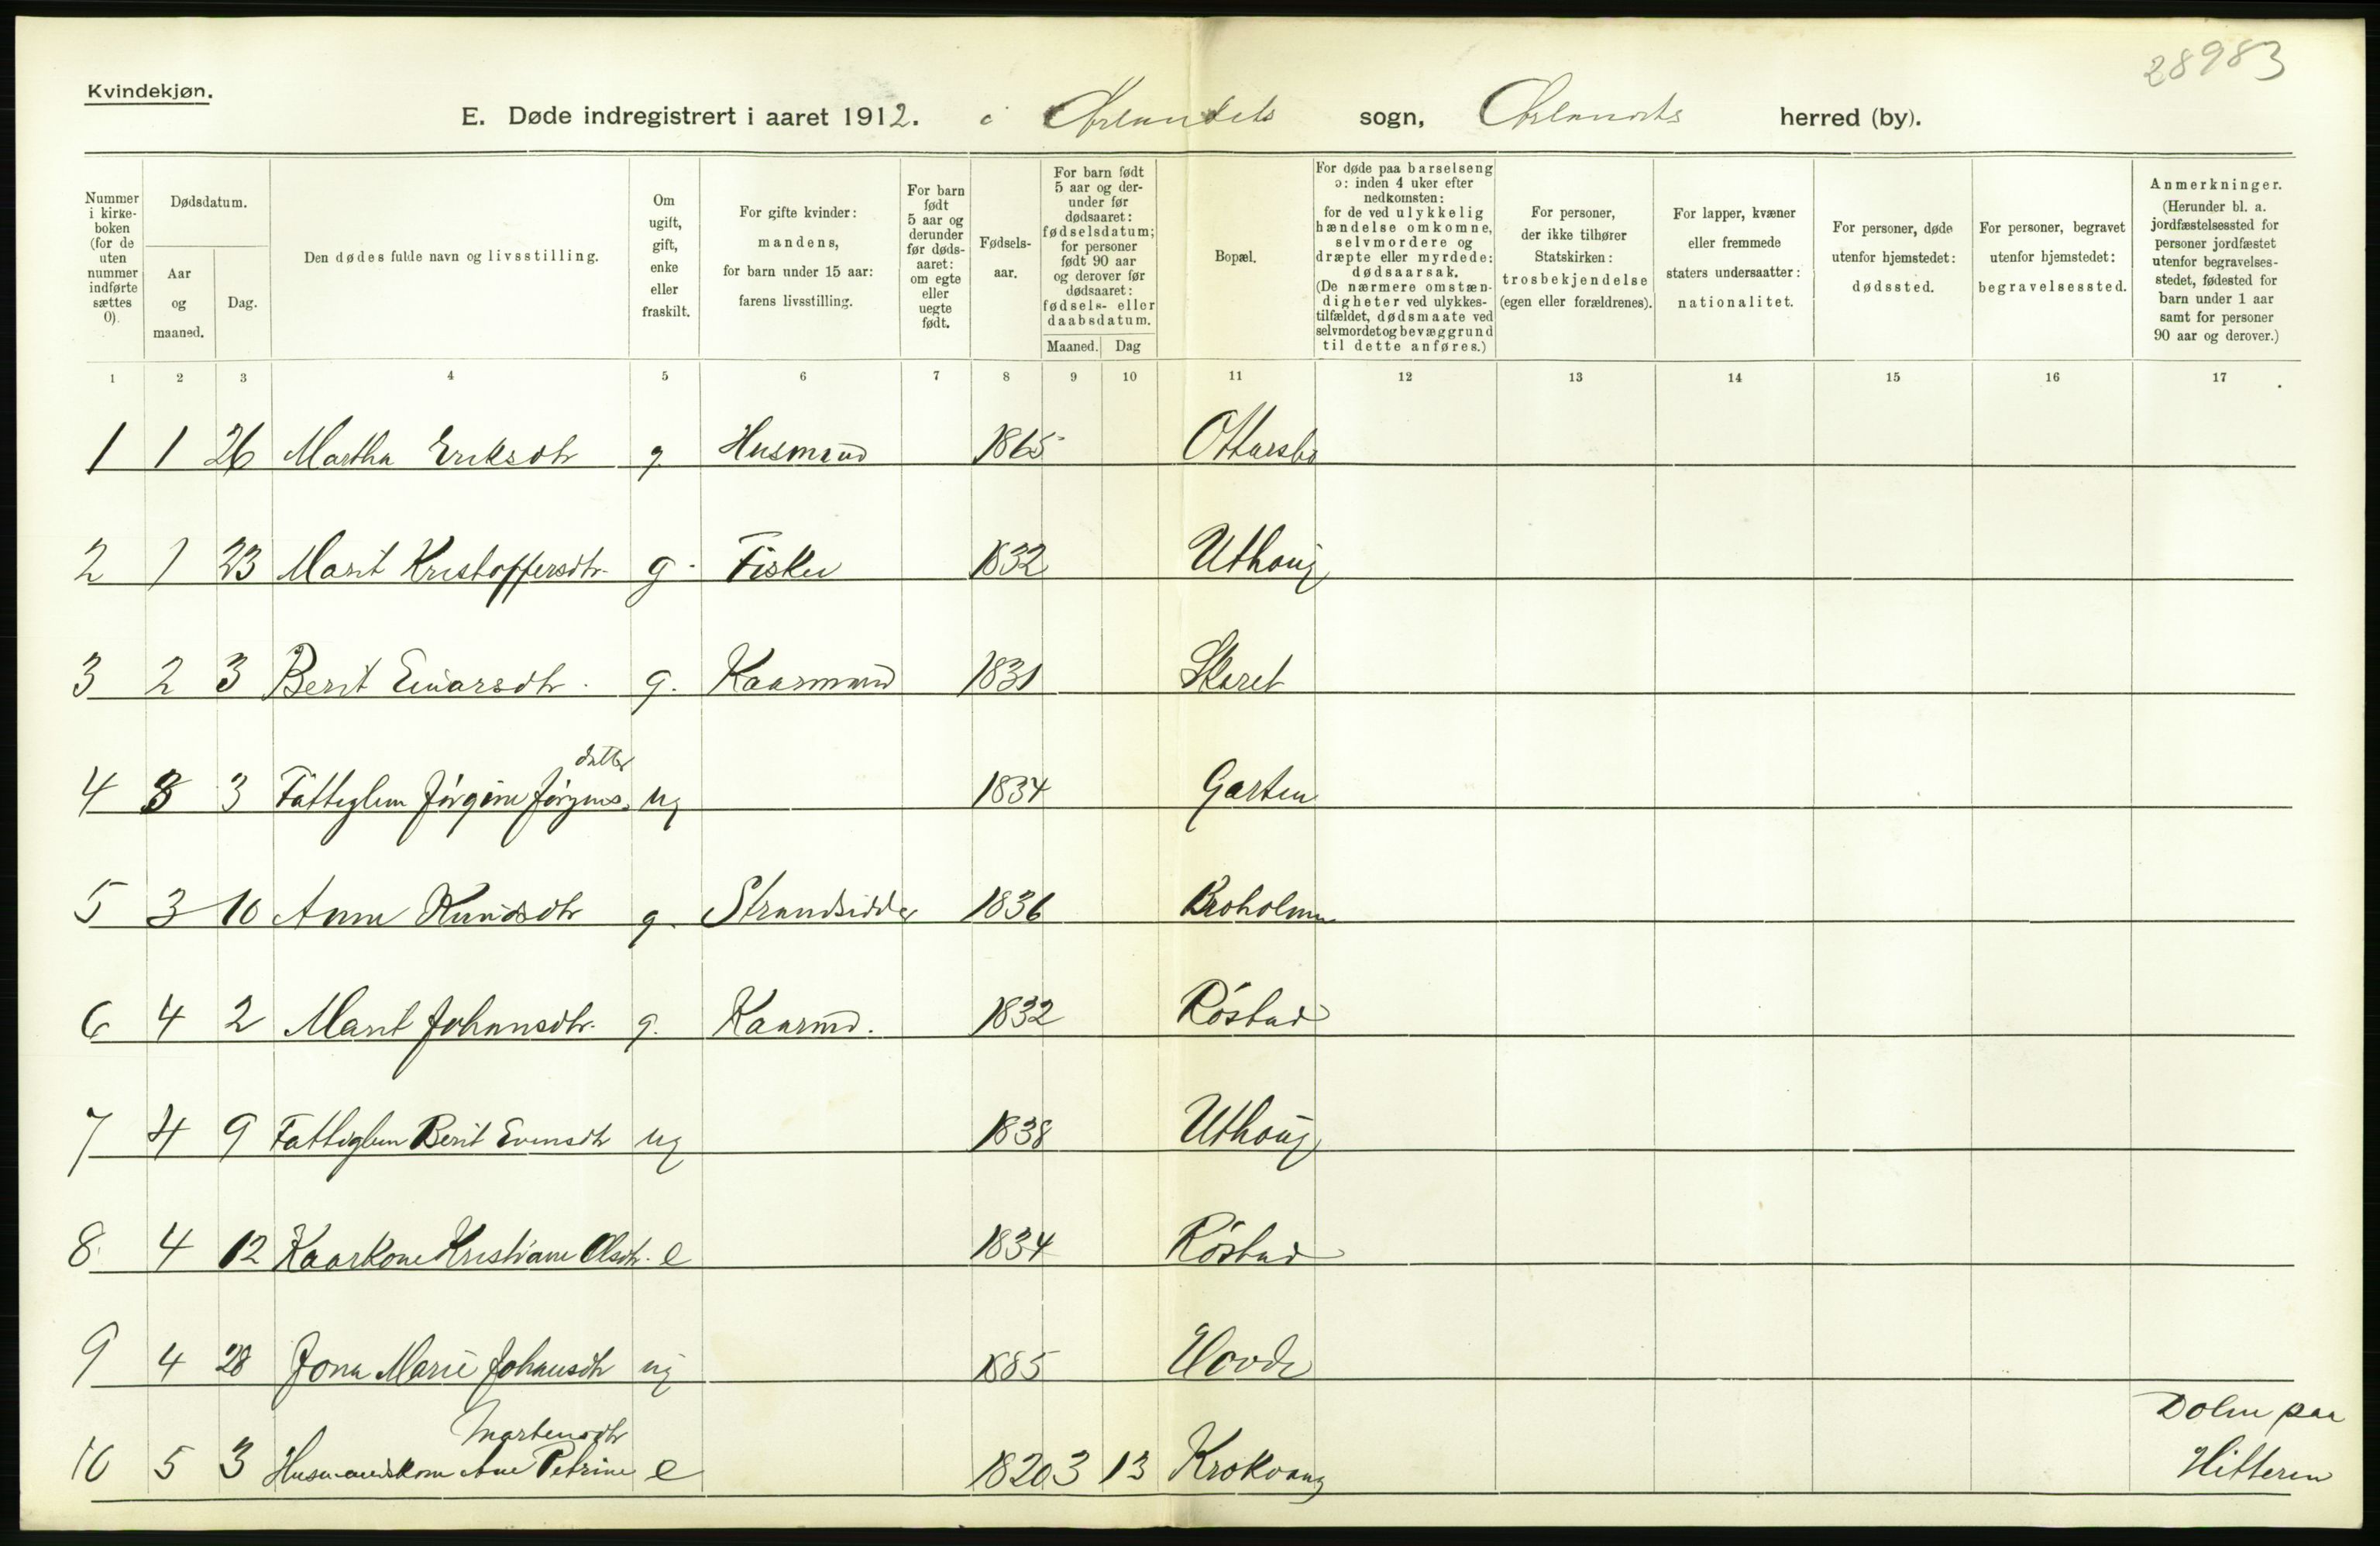 28983
Kvindekjøn.
E. Døde indregistrert i aaret 1912. i Ørlandets sogn, Ørlandets herred (by).
Nummer i kirkeboken (for de uten nummer indførte sættes 0).
Dødsdatum.
Aar og maaned.
Dag.
Den dødes fulde navn og livsstilling.
Om ugift, gift, enke eller fraskilt.
For gifte kvinder: mandens, for barn under 15 aar: farens livsstilling.
For barn født 5 aar og derunder før dødsaaret: om egte eller uegte født.
Fødselsaar.
For barn født 5 aar og derunder før dødsaaret: fødselsdatum; for personer født 90 aar og derover før dødsaaret: fødsels- eller daabsdatum.
Maaned. Dag
Bopæl.
For døde paa barselseng ɔ: inden 4 uker efter nedkomsten: for de ved ulykkelig hændelse omkomne, selvmordere og dræpte eller myrdede: dødsaarsak. (De nærmere omstændigheter ved ulykkestilfældet, dødsmaate ved selvmordet og bevæggrund til dette anføres.)
For personer, der ikke tilhører Statskirken: trosbekjendelse (egen eller forældrenes).
For lapper, kvæner eller fremmede staters undersaatter: nationalitet.
For personer, døde utenfor hjemstedet: dødssted.
For personer, begravet utenfor hjemstedet: begravelsessted.
Anmerkninger. (Herunder bl. a. jordfæstelsessted for personer jordfæstet utenfor begravelsesstedet, fødested for barn under 1 aar samt for personer 90 aar og derover.)
1 2 3 4 5 6 7 8 9 10 11 12 13 14 15 16 17
1 1 26 Martha Eriksdtr g. Husmand 1865 Ottersbo
2 1 23 Marit Kristoffersdtr. g. Fisker 1832 Uthaug
3 2 3 Berit Einarsdtr. g. Kaarmand 1831 Skaret
datter
4 3 3 Fattiglem Jørgine Jørgens. ug 1834 Garten
5 3 10 Anne Knudsdtr g. Strandsidder 1836 Broholmen
6 4 2 Marit Johansdtr. g. Kaarmd. 1832 Røstad
7 4 9 Fattiglem Berit Evensdtr ug 1838 Uthaug
8 4 12 Kaarkone Kristiane Olsdtr. e 1834 Røstad
9 4 28 Jona Marie Johansdtr ug 1885 Hovde
Martensdtr Dolm paa
10 5 3 Husmandskone Ane Petrine e 1820 3 13 Krokvaag Hitteren